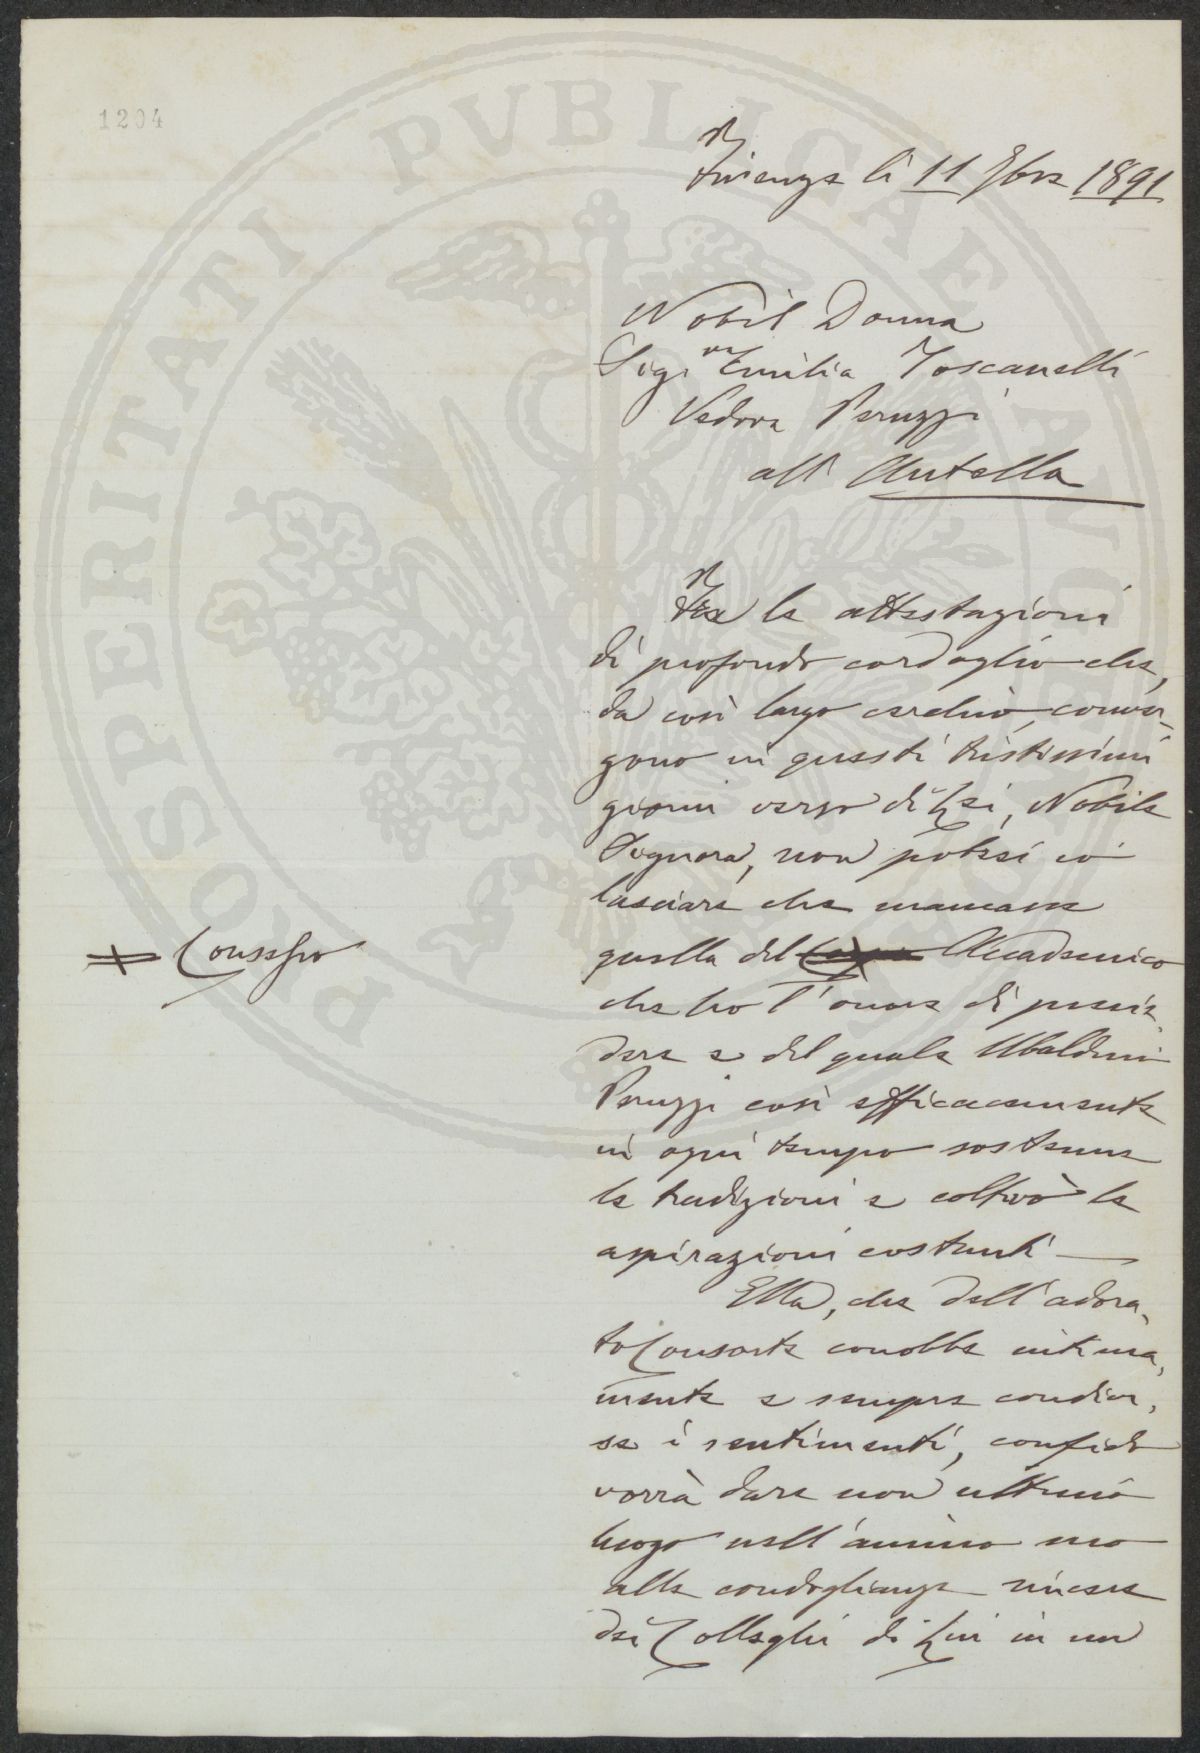 1204
Firenze li 11 7bre 1891
Nobil Donna
Sigra Emilia Toscanelli
Vedova Peruzzi
all'Antella
Fra le attestazioni
di profondo cordoglio che,
da così largo cerchio, conver,
gono in questi tristissimi
giorni verso di Lei, Nobile
Signora, non potrei io
lasciare che mancasse
Consesso
quella del Accademico
che ho l'onore di presie,
dere e del quale Ubaldino
Peruzzi così efficacemente
in ogni tempo sostenne
le tradizioni e coltivò le
aspirazioni costanti
Ella, che dell'adora,
to Consorte conobbe intima,
mente e sempre condivi,
se i sentimenti, confido
vorrà dare non ultimo
luogo nell'animo suo
alle condoglianze sincere
dei Colleghi di Lui in un
PROSPERITATI PVBLICAE AVGENDAE